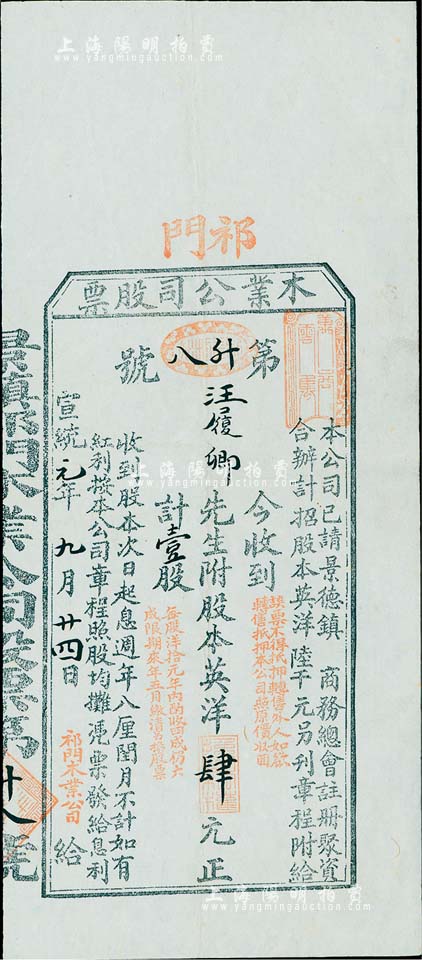 上海陽明拍賣
www.yangmingauction.com
祁門
木業公司股票
本公司已請景德鎮　商務總會註冊聚資
合辦計招股本英洋陸千元另刊章程附給
第
升八
號
汪履卿先生附股本英洋肆元正
今收到
計壹股
該票不得抵押轉售外人如欲
轉售抵押本公司照原價收回
每股洋拾元年內酌收四成仍六
成限期來年五月繳清另換股票
收到股本次日起息週年八厘閏月不計如有
紅利按本公司章程照股均攤憑票發給息利
宣統元年九月廿四日　給
祁門木業公司
景鎮祁門木業公司股票第
升八號
上海陽明拍賣
www.yangmingauction.com
上海陽明拍賣
www.yangmingauction.com